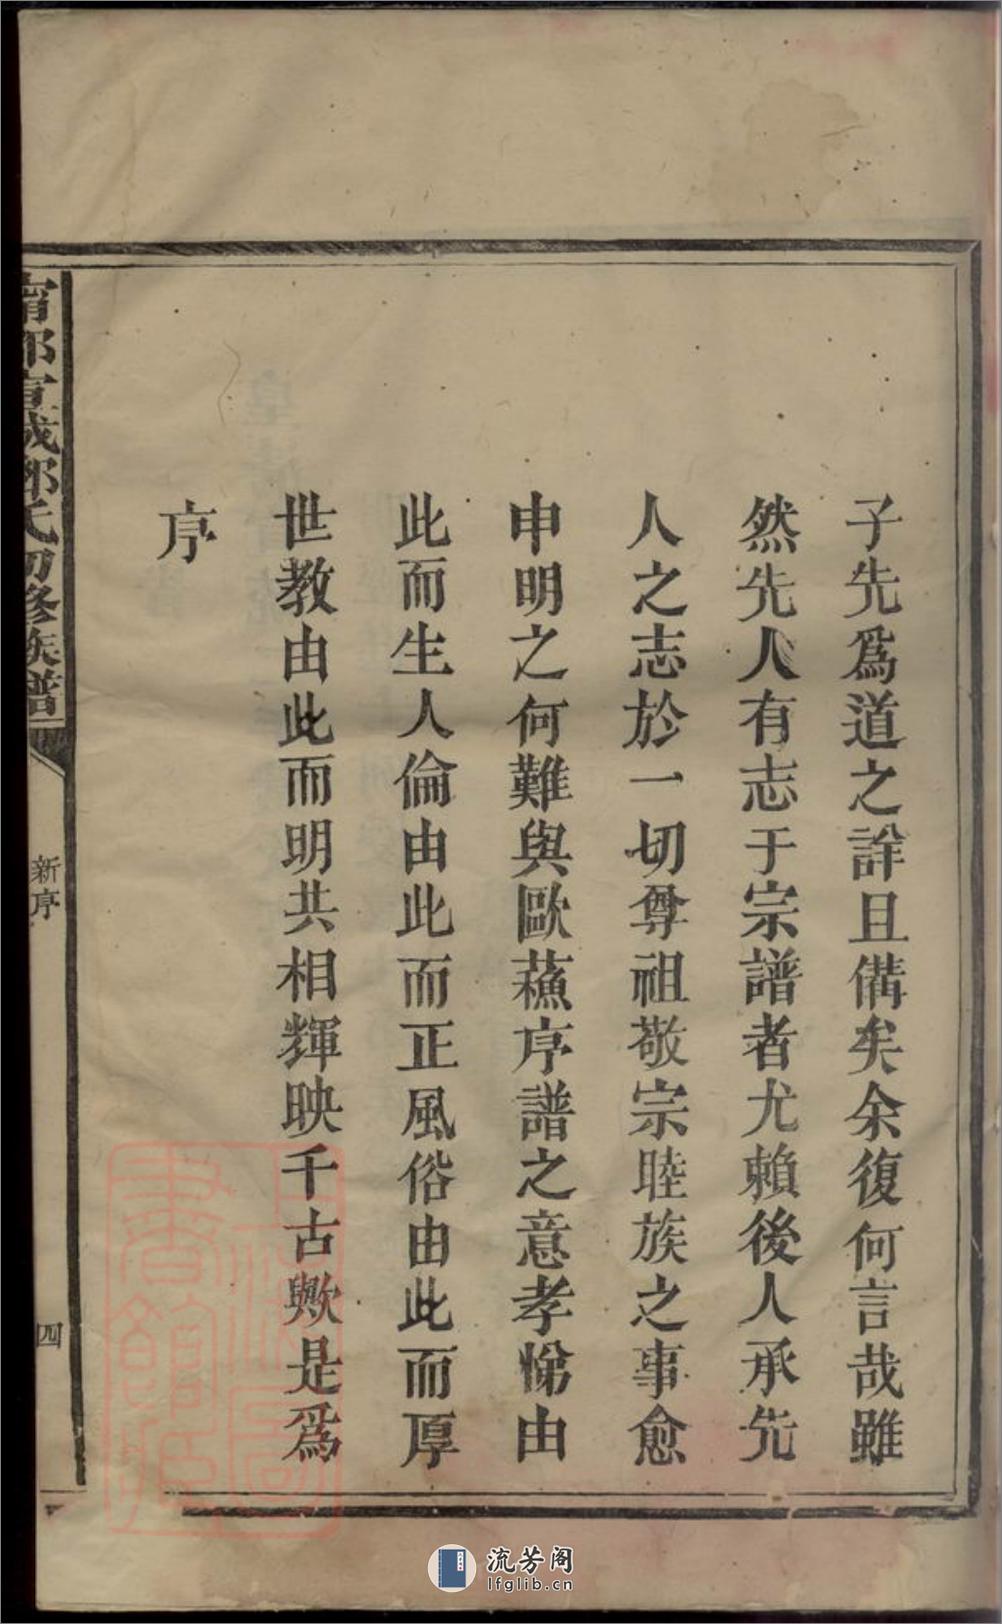 子先爲道之詳且備矣余復何言哉雖
然先人有志于宗譜者尤賴後人承先
人之志於一切尊祖敬宗睦族之事愈
申明之何難與歐蘓序譜之意孝悌由
此而生人倫由此而正風俗由此而厚
世教由此而明共相輝映千古歟是爲
序
氏初修族譜
新序
四
流芳阁
lfglib.cn